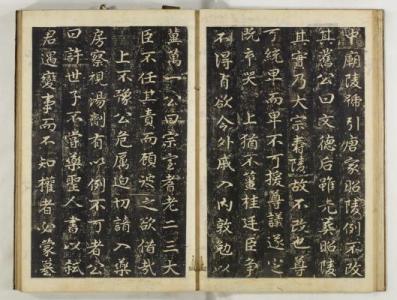 中廟陵稱引唐家昭陵例不改
其舊公曰文德后雖先葬昭陵
其實乃大宗壽陵故不改也尊
可統卑而卑不可援尊議遂定
既卒哭 上猶不薑桂廷臣爭
不得有欲令外戚入內敦勉以
萬一公曰宗室耆老一二三大
臣不任其責而顧之欲
上不豫公危厲迫切請入藥
房察視湯劑有以例不可者公
曰許世子不嘗藥聖人書以弑
君遇變事而不知權者必蒙篡